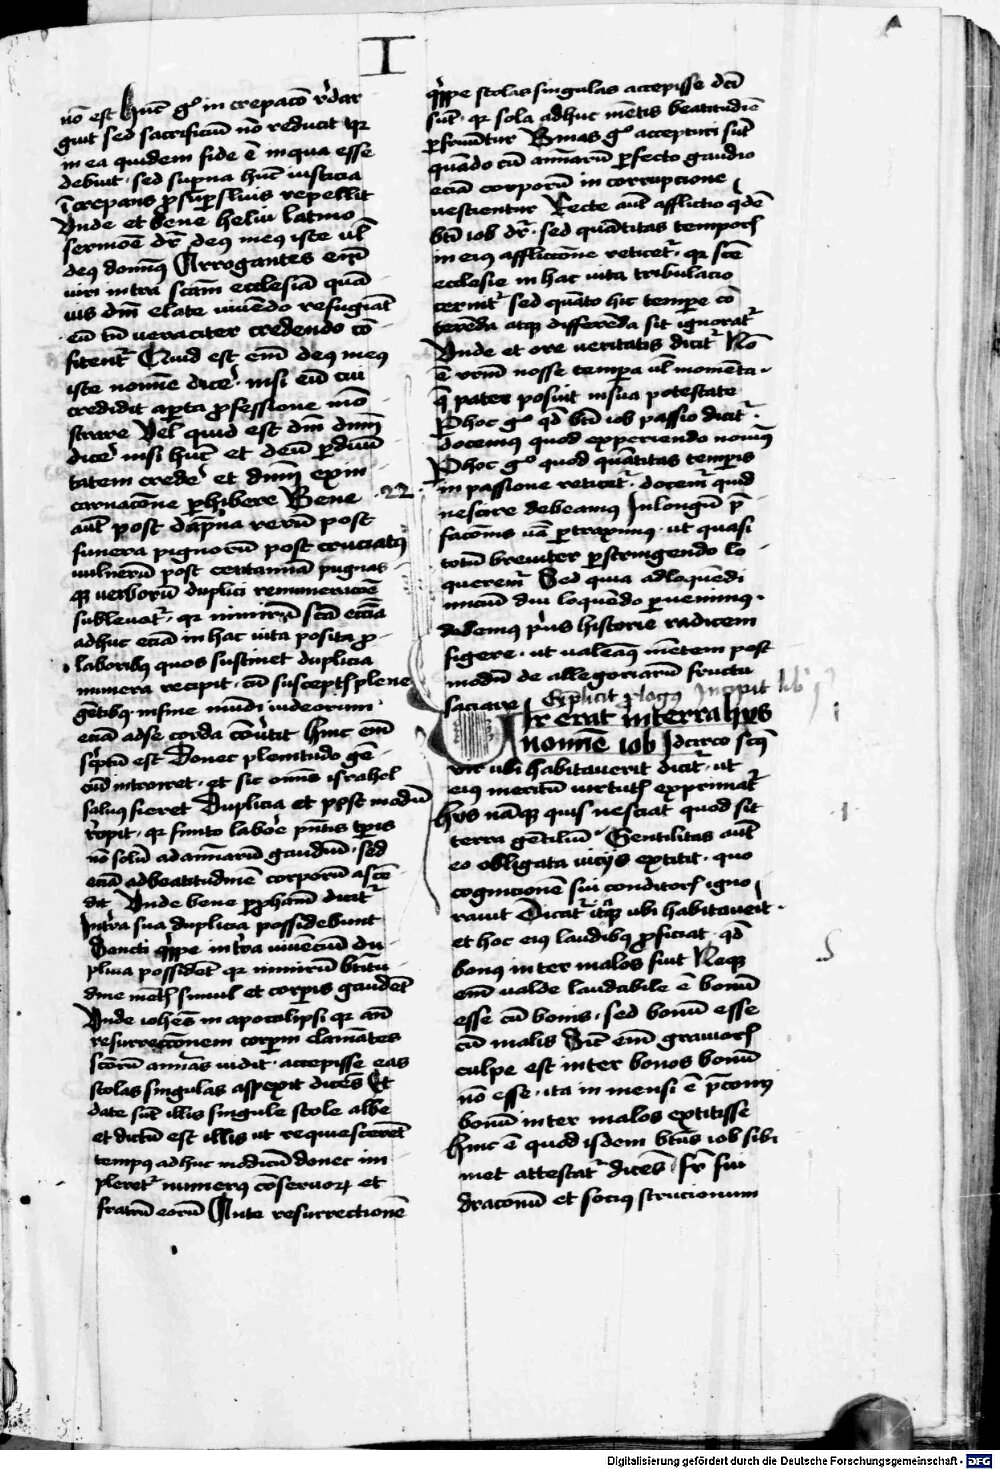 I
nō est hūc gͦ in crepacō r̄dar
guit sed sacrificiū nō reducit qr
in ea quidem fide ē in qua esse
debuit · sed sup̄na hūc iusticia
īcrepans p̄ sup̄fluis repellit
Vnde et bene heliu latino
sermōe dr̄ deꝰ meꝰ iste ul̄
deꝰ domīꝰ Arrogantes em̄
viri intra scām ecclesiā quā
uis dm̄ elate viuēdo refugiāt
eū tn̄ veraciter credendo cō
fitent᷑ Quid est em̄ deꝰ meꝰ
iste nomīe dice᷑ · nisi eū cui
credidit ap̄ta ꝓfessione mō
strare Vel quid est dm̄ dnm̄
dice᷑ nisi hūc et deū ꝑ diuī
tatem crede᷑ et dnm̄ ex in
carnacōne ꝑhibere Bene
aūt post dāpna rerū post
funera pignorū post cruciatꝰ
vulnerū post certamīa pugnas
qꝫ verborū duplici remuneracōe
subleuat᷑ · qr nimirū scā eccīa
adhuc eciā in hac vita posita ꝓ
laboribꝰ quos sustinet duplicia
munera recipit · cū susceptis plene
gētibꝰ · in fine mūdi iudeorum
eciā ad se corda cōvertit hinc em̄
sc̄ptū est Donec plenitudo gē
ciū introiret · et sic om̄is israhel
saluꝰ fieret Duplicia et post modū
recipit · qr finito labore p̄ntis tp̄is
nō solū ad animarū gaudiū · sed
eciā ad beatitudinē corporū ascē
dit Vnde bene ꝑ ꝓphetā dicit᷑
In t̄ra sua duplicia possidebunt
Sancti q̄ppe in t̄ra viuenciū du
plicia possidēt qr nimirū btītu
dine mētis simul et corꝑis gaudēt
Vnde iohēs in apocalipsi qr añ
resurreccōnem corꝑum clamātes
scōrū animas vidit · accepisse eas
stolas singulas aspexit dicēs Et
date sūt illis singule stole albe
et dictū est illis ut requiescerēt
tempꝰ adhuc modicū donec im
pleret᷑ numerꝰ cōseruoꝝ et
fratrū eorū Ante resurrectionē
q̄ppe stolas singulas accepisse dcī
sūt · qr sola adhuc mētis beatitudīe
ꝑfruūtur Binas gͦ accepturi sūt
quādo cū animarū ꝑfecto gaudio
eciā corporū in corrupcione
vestientur Recte aūt afflictio qdē
bti iob dr̄ · sed quātitas temporis
in eiꝰ affliccōne reticet᷑ · qr scē
ecclesie in hac vita tribulacio
cernit᷑ sed quāto hic tempore cō
terēda atqꝫ differēda sit ignorat᷑
Vnde et ore veritatis dicit᷑ Nō
ē vr̄m nosse tempora ul̄ momēta ·
q̄ pater posuit in sua potestate
Per hoc gͦ qd̄ bti iob passio dicit᷑ ·
docemur quod experiendo nouimꝰ
Per hoc gͦ quod quātitas temporis
in passione reticet᷑ · docem᷑ quid
nescire debeamꝰ In longū p̄
facōnis v̄ba ꝓtraximꝰ · ut quasi
totū breuiter ꝑstringendo lo
querem᷑ Sed quia ad loquēdi
iniciū diu loquēdo ꝑuenimꝰ ·
debemꝰ priꝰ historie radicem
figere · ut valeamꝰ mētem post
modū de allegoriarū fructu
saciare Explicit ꝓlogꝰ Incipit lib᷑ jꝰ
Vir erat in terra hus
nomīe iob Idcirco scūs
vir ubi habitauerit dicit᷑ · ut
eiꝰ meritū virtutis exprimat᷑
hus nāqꝫ quis nesciat quod sit
terra gētiliū Gentilitas aūt
eo obligata vicijs extitit · quo
cognicionē sui conditoris igno
rauit Dicat᷑ itaqꝫ ubi habitauerit ·
et hoc eiꝰ laudibꝰ ꝓficiat · qd̄
bonꝰ inter malos fuit Neqꝫ
em̄ valde laudabile ē bonū
esse cū bonis · sed bonū esse
cū malis Sicut em̄ grauioris
culpe est inter bonos bonū
nō esse · ita in mensi ē p̄conij
bonū inter malos extitisse
hinc ē quod isdem btūs iob sibi
met attestat᷑ dicēs fr̄ fui
draconū et sociꝰ strucionum
22
Digitalisierung gefördert durch die Deutsche Forschungsgemeinschaft - DFG